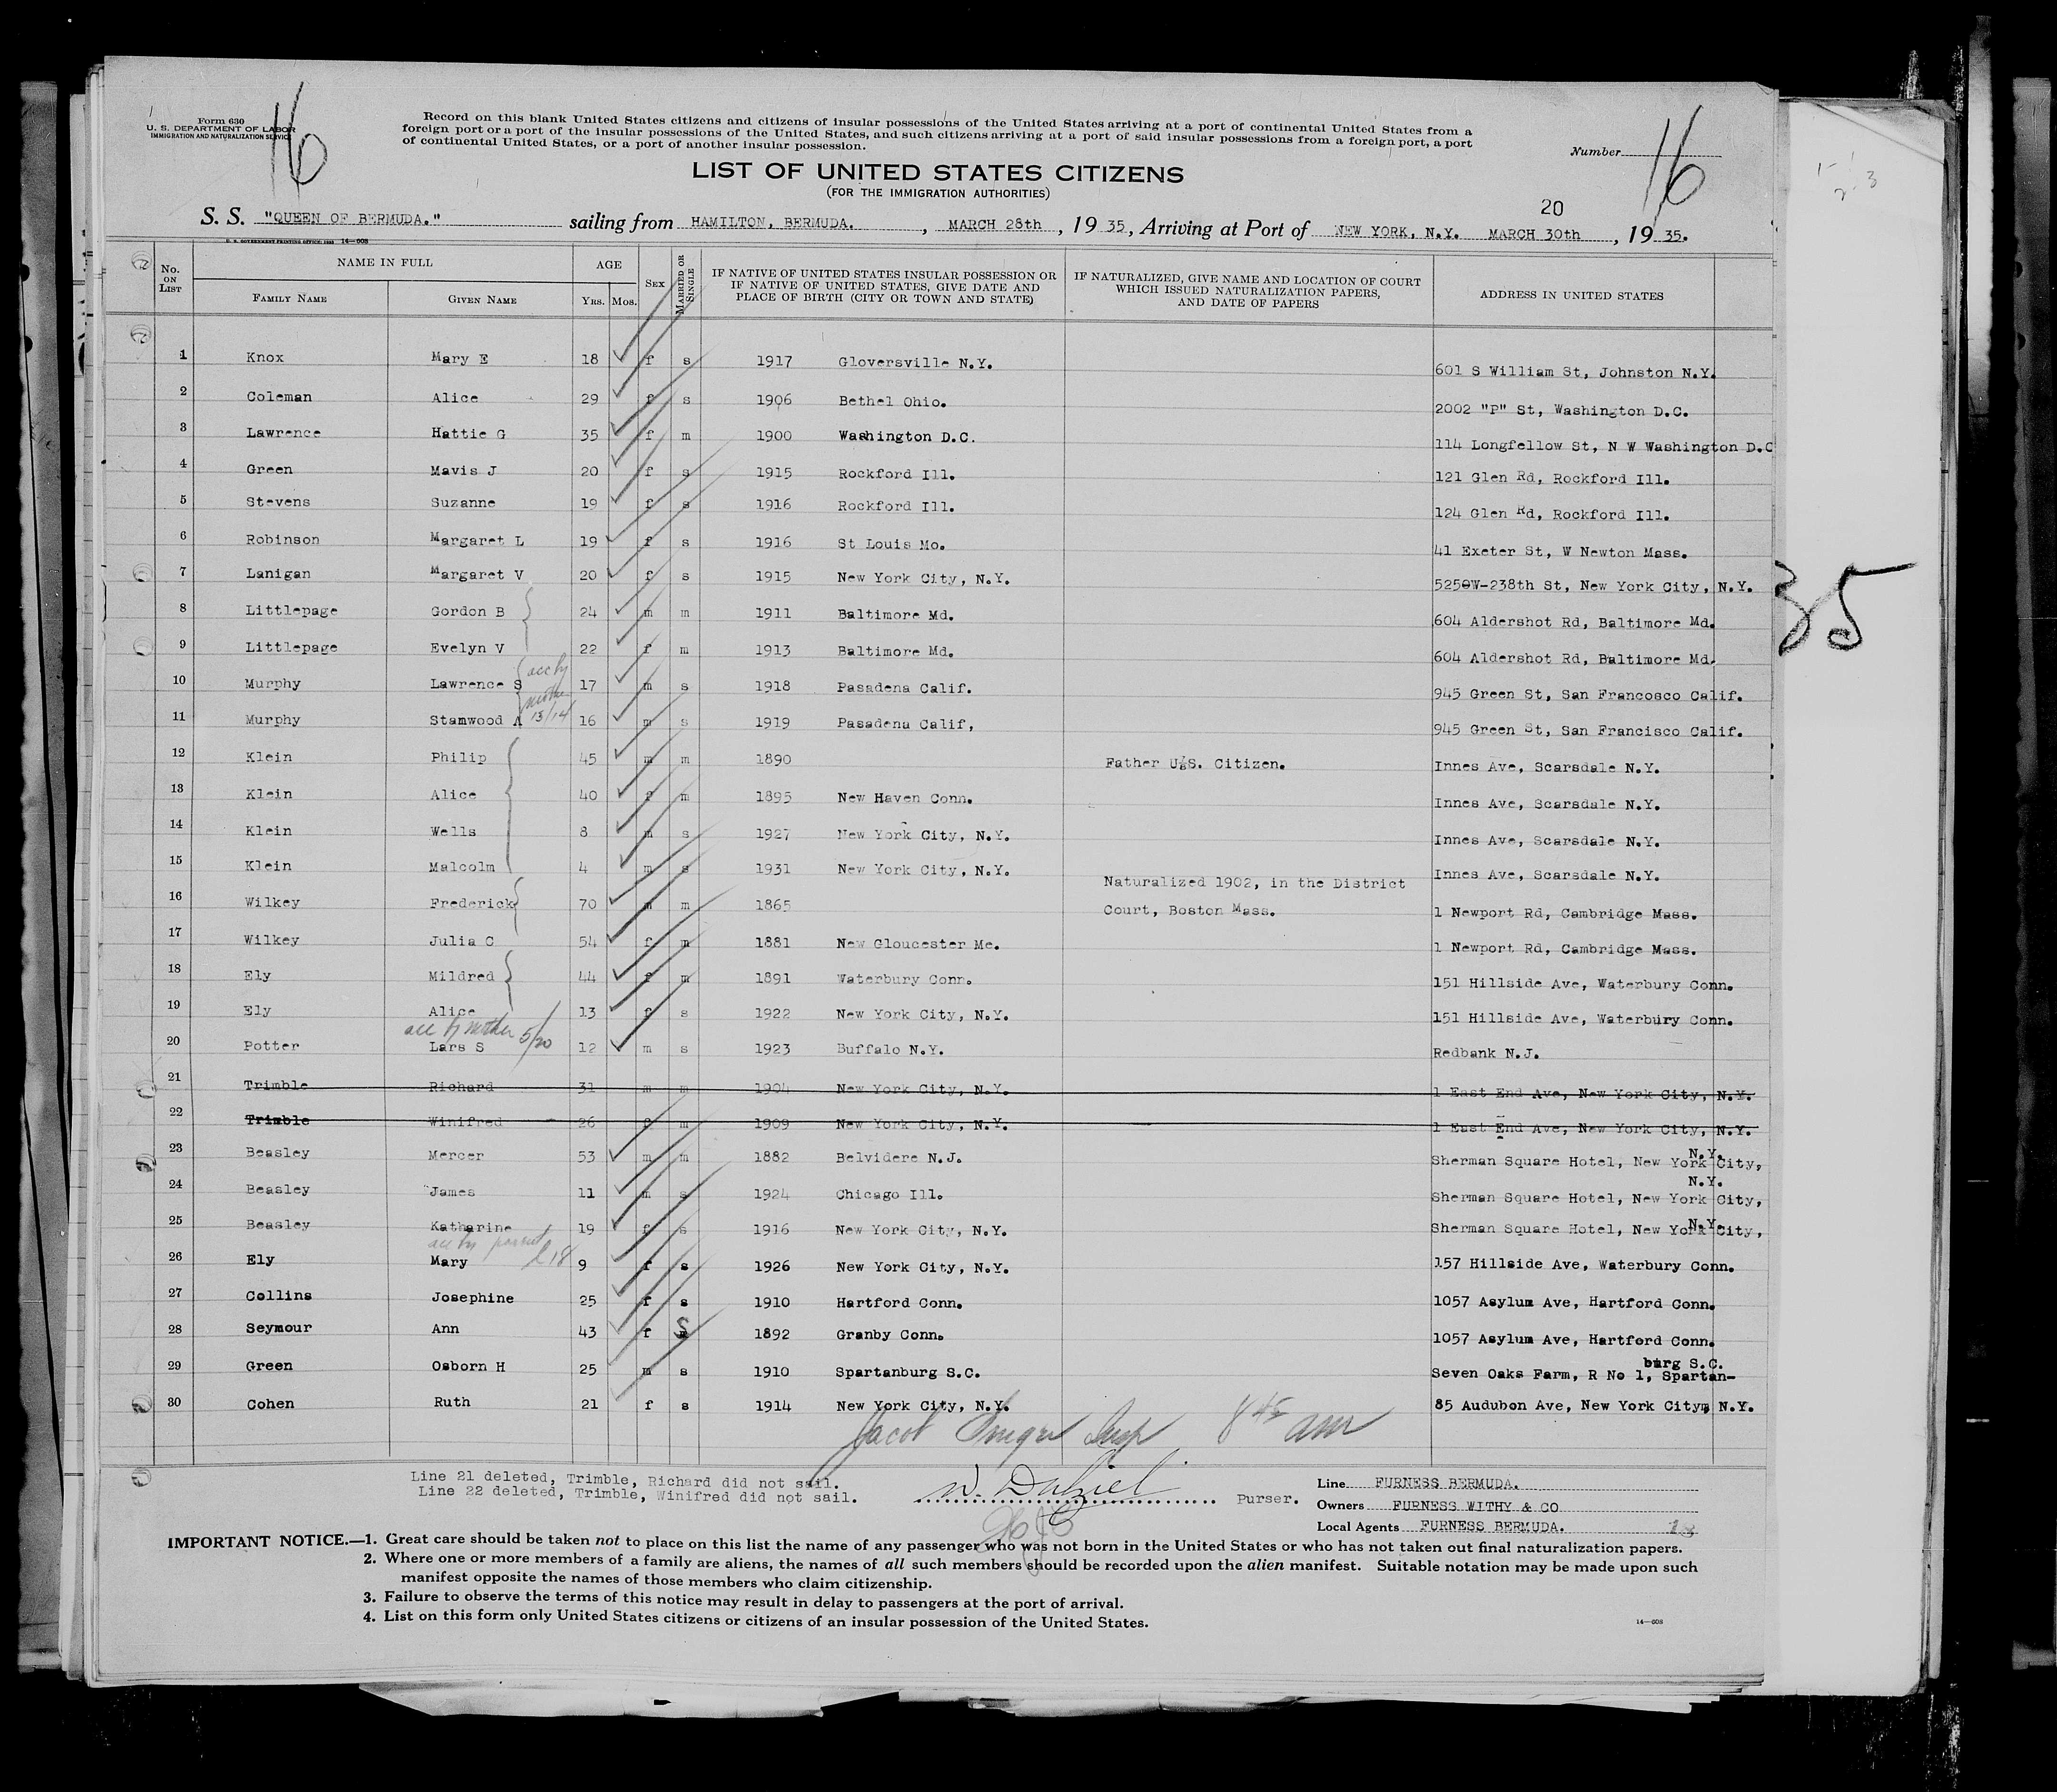 Form 630
U. S. DEPARTMENT OF LABOR
IMMIGRATION AND NATURALIZATION SERVICE
16
Record on this blank United States citizens and citizens of insular possessions of the United States arriving at a port of continental United States from a
foreign port or a port of the insular possessions of the United States, and such citizens arriving at a port of said insular possessions from a foreign port, a port
of continental United States, or a port of another insular possession.
Number
16
LIST OF UNITED STATES CITIZENS
(FOR THE IMMIGRATION AUTHORITIES)
20
S. S. "QUEEN OF BERMUDA." sailing from HAMILTON, BERMUDA. , MARCH 28th , 19 35, Arriving at Port of NEW YORK, N.Y. MARCH 30th , 19 35.
U. S. GOVERNMENT PRINTING OFFICE: 1933 14—608
No. ON LIST NAME IN FULL AGE SEX MARRIED OR SINGLE IF NATIVE OF UNITED STATES INSULAR POSSESSION OR IF NATIVE OF UNITED STATES, GIVE DATE AND PLACE OF BIRTH (CITY OR TOWN AND STATE) IF NATURALIZED, GIVE NAME AND LOCATION OF COURT WHICH ISSUED NATURALIZATION PAPERS, AND DATE OF PAPERS ADDRESS IN UNITED STATES
FAMILY NAME GIVEN NAME YRS. MOS.
1 Knox Mary E 18 f s 1917 Gloversville N.Y. 601 S William St, Johnston N.Y.
2 Coleman Alice 29 f s 1906 Bethel Ohio. 2002 "P" St, Washington D.C.
3 Lawrence Hattie G 35 f m 1900 Washington D.C. 114 Longfellow St, N W Washington D.C
4 Green Mavis J 20 f s 1915 Rockford Ill. 121 Glen Rd, Rockford Ill.
5 Stevens Suzanne 19 f s 1916 Rockford Ill. 124 Glen Rd, Rockford Ill.
6 Robinson Margaret L 19 f s 1916 St Louis Mo. 41 Exeter St, W Newton Mass.
7 Lanigan Margaret V 20 f s 1915 New York City, N.Y. 5250W-238th St, New York City, N.Y.
8 Littlepage Gordon B 24 m m 1911 Baltimore Md. 604 Aldershot Rd, Baltimore Md.
35
9 Littlepage Evelyn V 22 f m 1913 Baltimore Md. 604 Aldershot Rd, Baltimore Md.
acc by
10 Murphy Lawrence S 17 m s 1918 Pasadena Calif. 945 Green St, San Francosco Calif.
mother
13/14
11 Murphy Stamwood A 16 m s 1919 Pasadena Calif, 945 Green St, San Francisco Calif.
12 Klein Philip 45 m m 1890 Father U.S. Citizen. Innes Ave, Scarsdale N.Y.
13 Klein Alice 40 f m 1895 New Haven Conn. Innes Ave, Scarsdale N.Y.
14 Klein Wells 8 m s 1927 New York City, N.Y. Innes Ave, Scarsdale N.Y.
15 Klein Malcolm 4 m s 1931 New York City, N.Y. Innes Ave, Scarsdale N.Y.
Naturalized 1902, in the District
16 Wilkey Frederick 70 m m 1865 Court, Boston Mass. 1 Newport Rd, Cambridge Mass.
17 Wilkey Julia C 54 f m 1881 New Gloucester Me. 1 Newport Rd, Cambridge Mass.
18 Ely Mildred 44 f m 1891 Waterbury Conn. 151 Hillside Ave, Waterbury Conn.
19 Ely Alice 13 f s 1922 New York City, N.Y. 151 Hillside Ave, Waterbury Conn.
acc by mother 5/20
20 Potter Lars S 12 m s 1923 Buffalo N.Y. Redbank N.J.
21 Trimble Richard 31 m m 1904 New York City, N.Y. 1 East End Ave, New York City, N.Y.
22 Trimble Winifred 26 f m 1909 New York City, N.Y. 1 East End Ave, New York City, N.Y.
N.Y.
23 Beasley Mercer 53 m m 1882 Belvidere N.J. Sherman Square Hotel, New York City,
N.Y.
24 Beasley James 11 m s 1924 Chicago Ill. Sherman Square Hotel, New York City,
N.Y.
25 Beasley Katharine 19 f s 1916 New York City, N.Y. Sherman Square Hotel, New York City,
acc by parent l 18
26 Ely Mary 9 f s 1926 New York City, N.Y. 157 Hillside Ave, Waterbury Conn.
27 Collins Josephine 25 f s 1910 Hartford Conn. 1057 Asylum Ave, Hartford Conn.
28 Seymour Ann 43 f S 1892 Granby Conn. 1057 Asylum Ave, Hartford Conn.
burg S.C.
29 Green Osborn H 25 m s 1910 Spartanburg S.C. Seven Oaks Farm, R No 1, Spartan-
30 Cohen Ruth 21 f s 1914 New York City, N.Y. 85 Audubon Ave, New York City, N.Y.
Jacob Insp 8 45 am
Line 21 deleted, Trimble, Richard did not sail.
Line 22 deleted, Trimble, Winifred did not sail.
W. Dalziel Purser.
Line FURNESS BERMUDA.
Owners FURNESS WITHY & CO
Local Agents FURNESS BERMUDA.
IMPORTANT NOTICE.—1. Great care should be taken not to place on this list the name of any passenger who was not born in the United States or who has not taken out final naturalization papers.
2. Where one or more members of a family are aliens, the names of all such members should be recorded upon the alien manifest. Suitable notation may be made upon such
manifest opposite the names of those members who claim citizenship.
3. Failure to observe the terms of this notice may result in delay to passengers at the port of arrival.
4. List on this form only United States citizens or citizens of an insular possession of the United States.
14—608